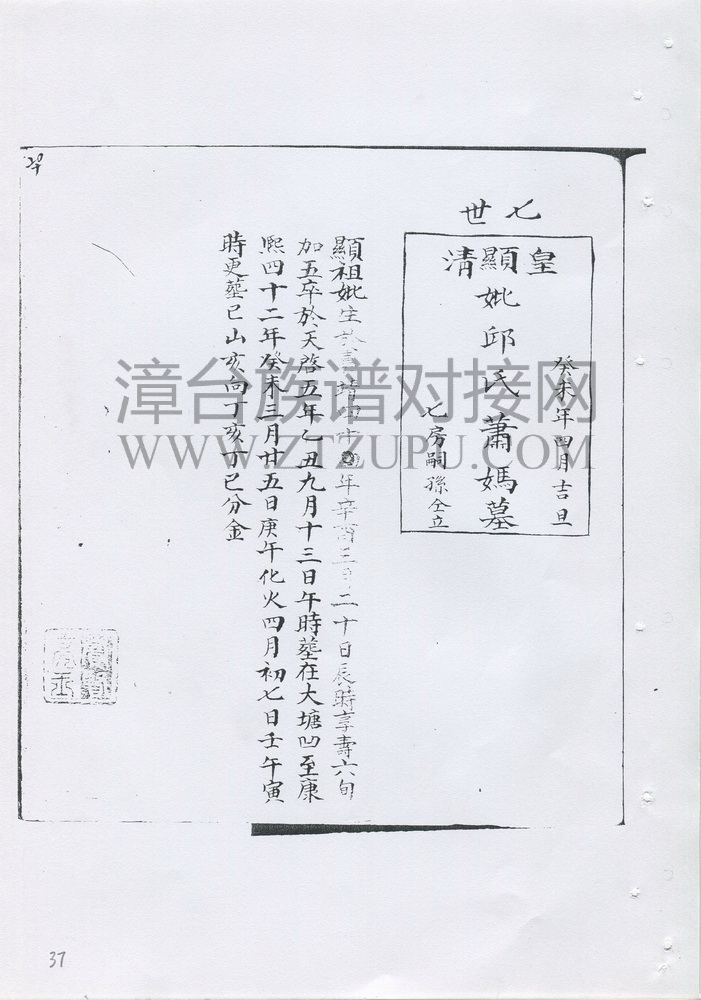 七世
皇清
癸未年四月吉旦
顯妣邱氏蕭媽墓
七房嗣孫仝立
顯祖妣生於嘉靖四十年辛酉三月二十日辰時享壽六旬
加五卒於天啓五年乙丑九月十三日午時塟在大塘凹至康
熙四十二年癸未三月廿五日庚午化火四月初七日壬午寅
時更塟巳山亥向丁亥丁巳分金
漳台族谱对接网
WWW.ZTZUPU.COM
37